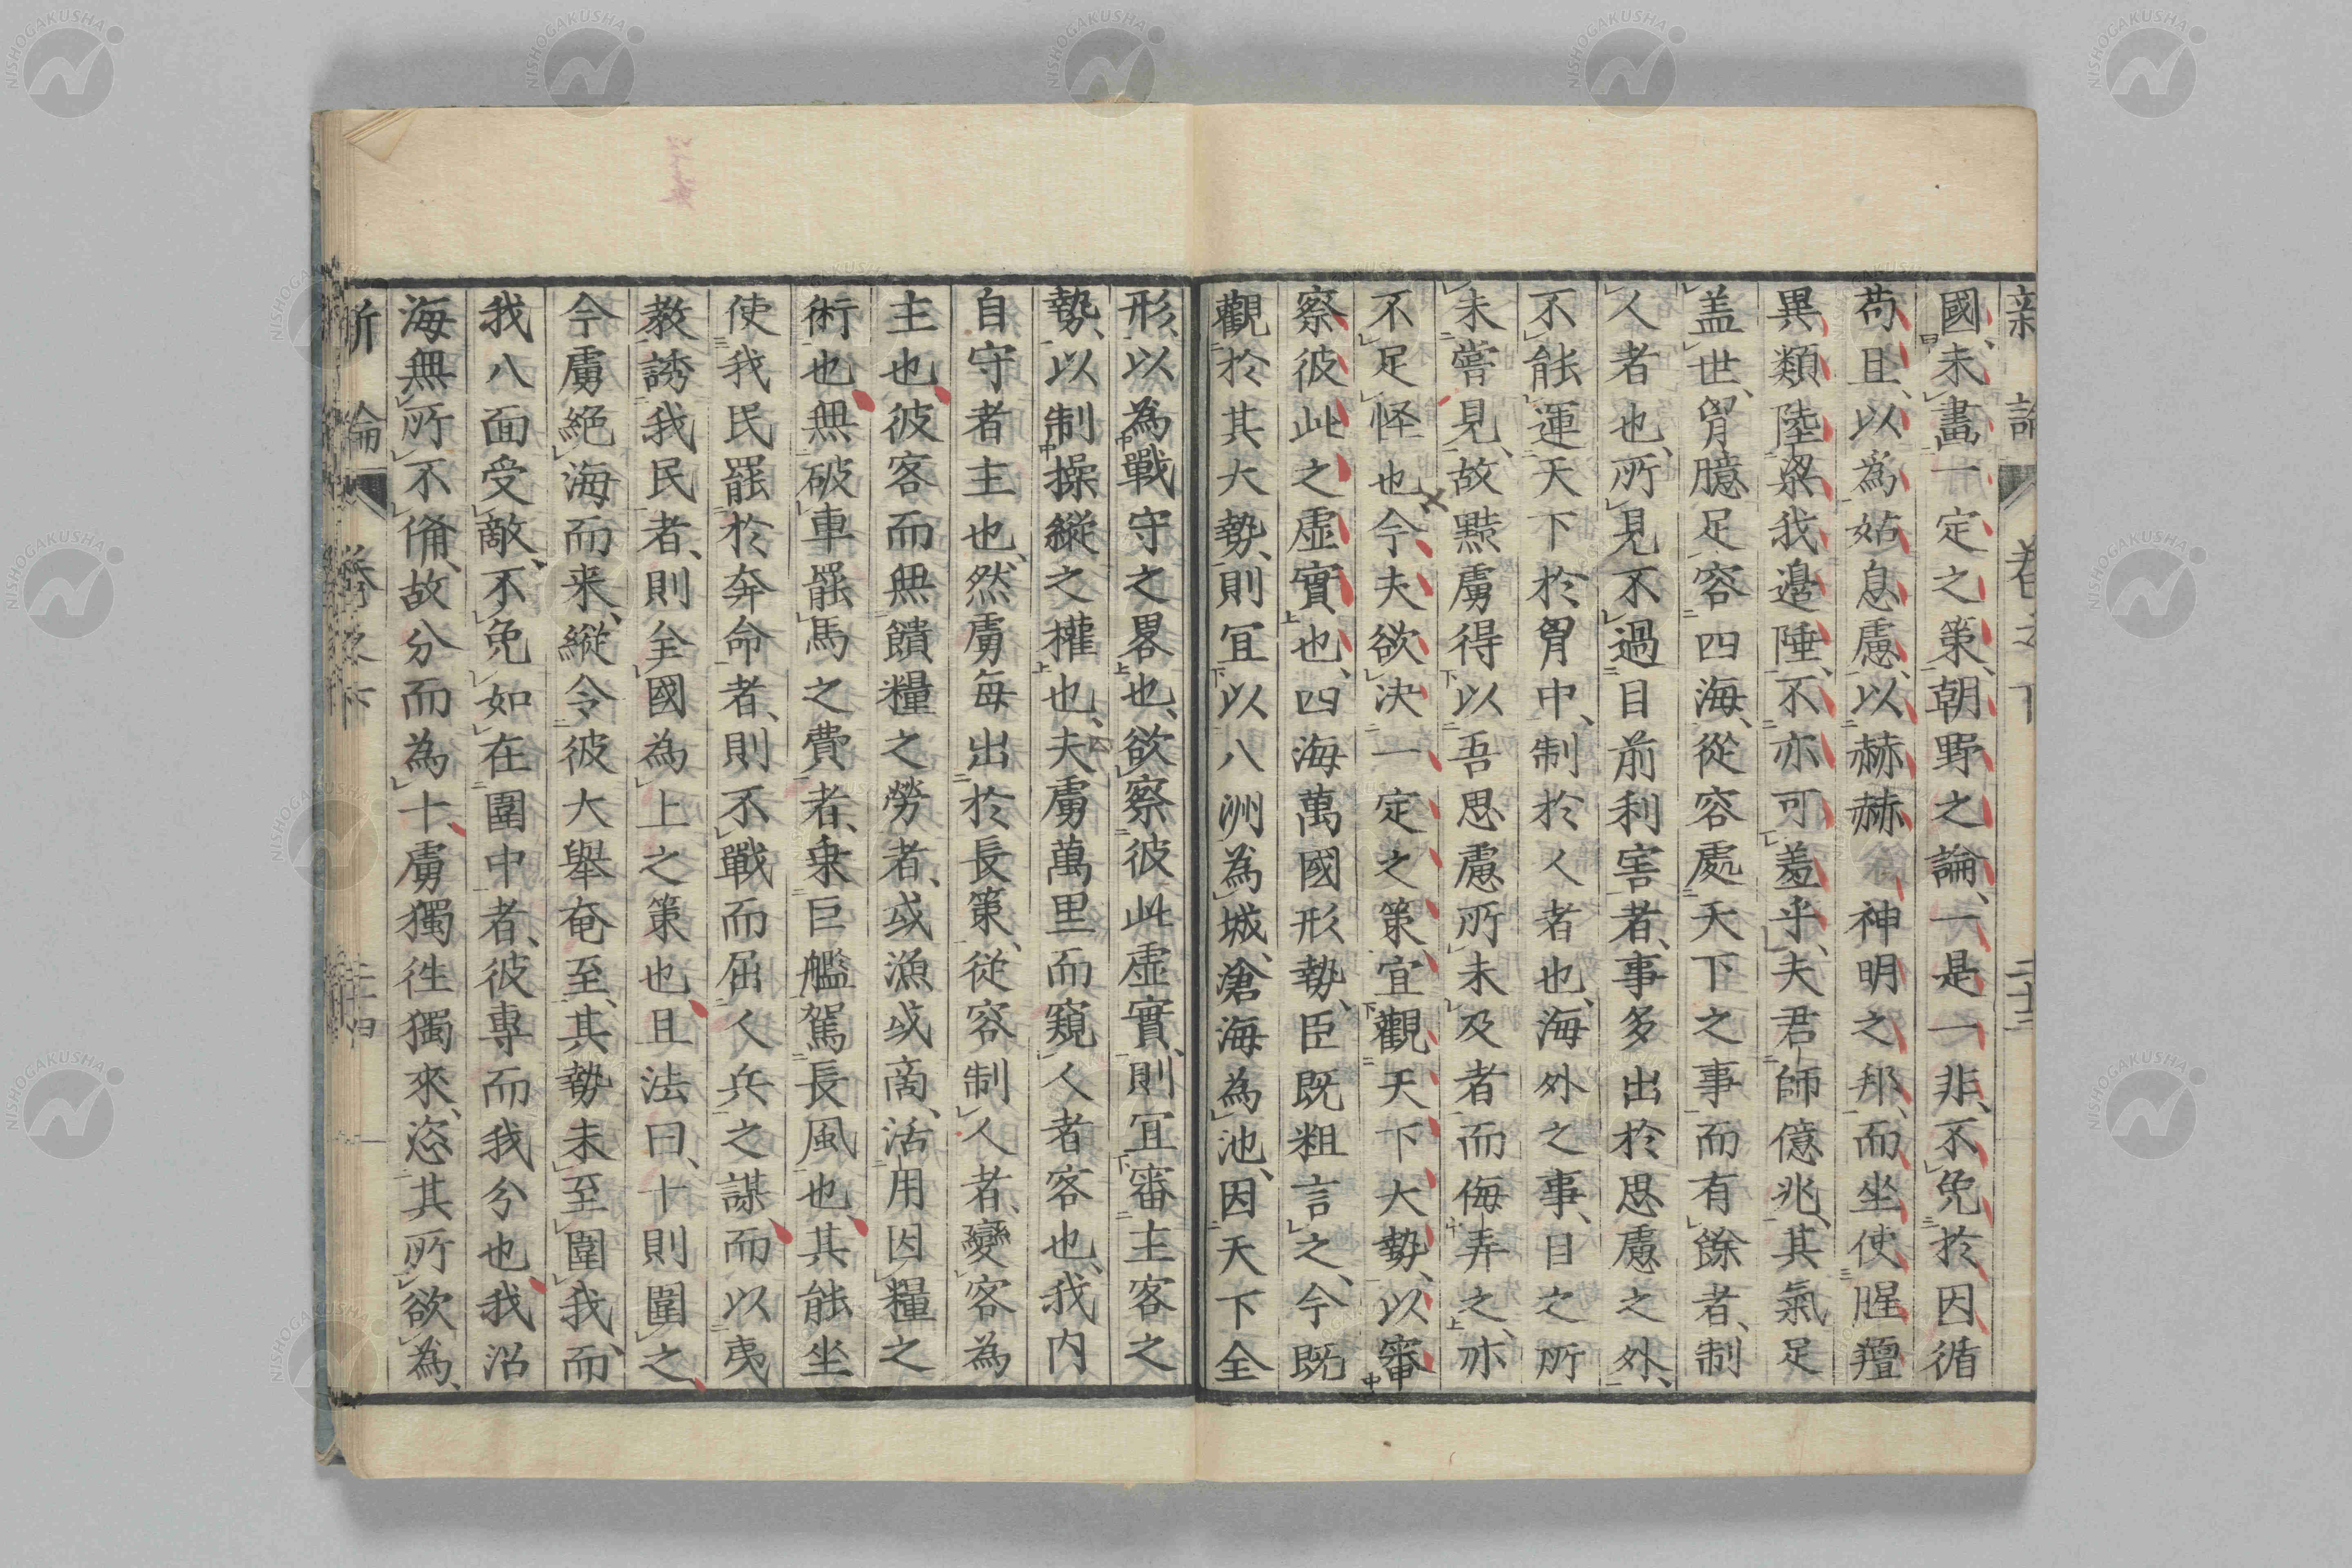 新論 卷之下 二十三
國、未畫一定之策、朝野之論、一是一非、不免於因循
苟且、以為姑息慮、以赫赫 神明之邦、而坐使腥羶
異類陸梁我邊陲、不亦可羞乎、夫君師億兆、其氣足
盖世、胷臆足容四海、從容處天下之事而有餘者、制
人者也、所見不過目前利害者、事多出於思慮之外、
不能運天下於胷中、制於人者也、海外之事、目之所
未嘗見、故黠虜得以吾思慮所未及者而侮弄之、亦
不足怪也今夫欲決一定之策、宜觀天下大勢、以審
察彼此之虛實也、四海萬國形勢、臣既粗言之、今既
觀於其大勢、則宜以八洲為城、滄海為池、因天下全
形、以為戰守之畧也、欲察彼此虛實、則宜審主客之
勢、以制操縱之權也、夫虜萬里而窺人者客也、我內
自守者主也、然虜每出於長策、從容制人者、變客為
主也、彼客而無饋糧之勞者、或漁或商、活用因糧之
術也、無破車罷馬之費者、乗巨艦駕長風也、其能坐
使我民罷於奔命者、則不戰而屈人兵之謀而以夷
教誘我民者、則全國為上之策也且法曰、十則圍之、
今虜絕海而来、縱令彼大舉奄至、其勢未至圍我、而
我八面受敵、不免如在圍中者、彼專而我分也我沿
海無所不備、故分而為十、虜獨往獨來、恣其所欲為、
新論 卷之下 二十四
NISHOGAKUSHA